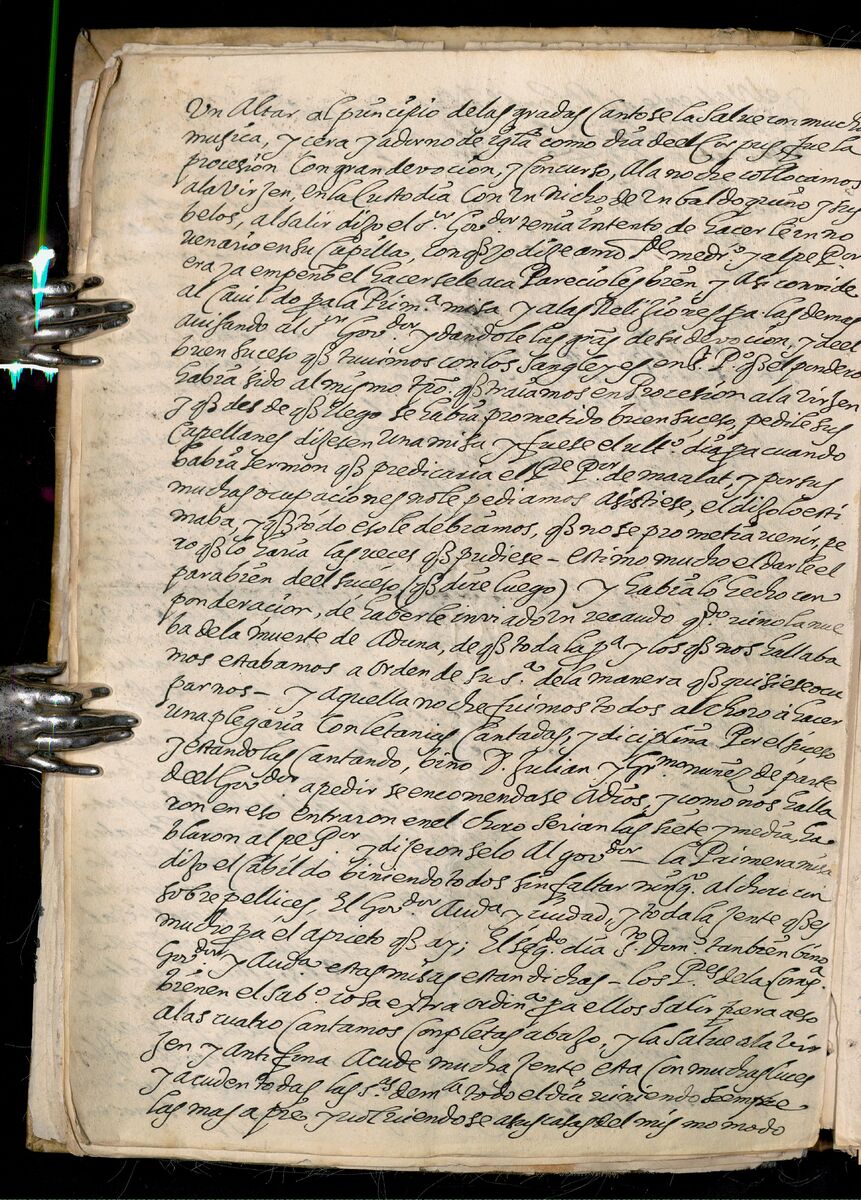 Un Altar, al principio de las gradas Cantose la Salue con mucha
musica, y cera y adorno de iglª como dia deel Corpus, fue la
procesion Con gran devocion, y Concurso, Ala noche collocamos
ala Virjen, en la Custodia Con Un Nicho de Un baldoquino y sus
belos, al salir dijo el s.r Gov.dor tenia intento de hacerle Un no
uenario en su Capilla, con q̃ yo dije amo P.e medrº y al pe P.or
era ya empeño el hacersele aca Parecioles bien, y Asi convide
al Cauildo pª la Prim.ª misa y alas Religiones pª las demas
auisando al s.r Gov.dor y dandole las grãs de su devocion, y deel
buen suceso q̃ tuuimos con los sangleyes en S. Pº q̃ el
habia sido al mismo tpõ q̃ traiamos en Procesion ala virjen
y q̃ des de q̃ llego se habia prometido buen suceso, pedile sus
Capellanes dijesen Una misa y fuese el ultº dia pª cuando
habia sermon q̃ predicaria el P.e P.or de maalat, y por sus
muchas ocupaciones no le pediamos asistiese, el dijo lo esti
maba, y q̃ todo eso le debiamos, q̃ no se prometia venir, pe
ro q̃ lo haria las veces q̃ pudiese – estimo mucho el darle el
parabien deel suceso (q̃ dire luego) y habialo hecho con
ponderacion, de haberle inviado Un recaudo q.do vino la nue
ba dela muerte de Aduna, de q̃ toda la pª y los q̃ nos hallaba
mos estabamos a orden de su s.ª dela manera q̃ quisiese ocu
parnos – y aquella noche fuimos todos al choro à hacer
Una plegaria Con letanias Cantadas, y diciplina Por el suceso
y estandolas Cantando, bino D. Julian y Gr.mo nuñez de parte
deel Gov.dor a pedir se encomendase Adios, y como nos halla
ron en eso entraron en el choro serian las siete y media, ha
blaron al pe P.or y dijeronselo Al gov.dor – la Primera misa
dijo el Cabildo biniendo todos sin faltar ningº al choro con
sobrepellices, El Gov.dor Audª y ciudad, y toda la jente q̃ es
mucho pª el aprieto q̃ ay; El seg.do dia S.to Domº tambien bino
Gov.dor y Audª estas misas estan dichas – los P.es de la Compª
bienen el sabº cosa extraordinª pª ellos salir fuera a eso
alas cuatro Cantamos Completas abajo, y la Salue ala Vir
jen y Antifona Acude mucha jente esta Con muchas luces
y acuden todas las s.ras de m.la todo el dia viniendo siempre
las mas a pie y uolviendose asus casas del mismo modo